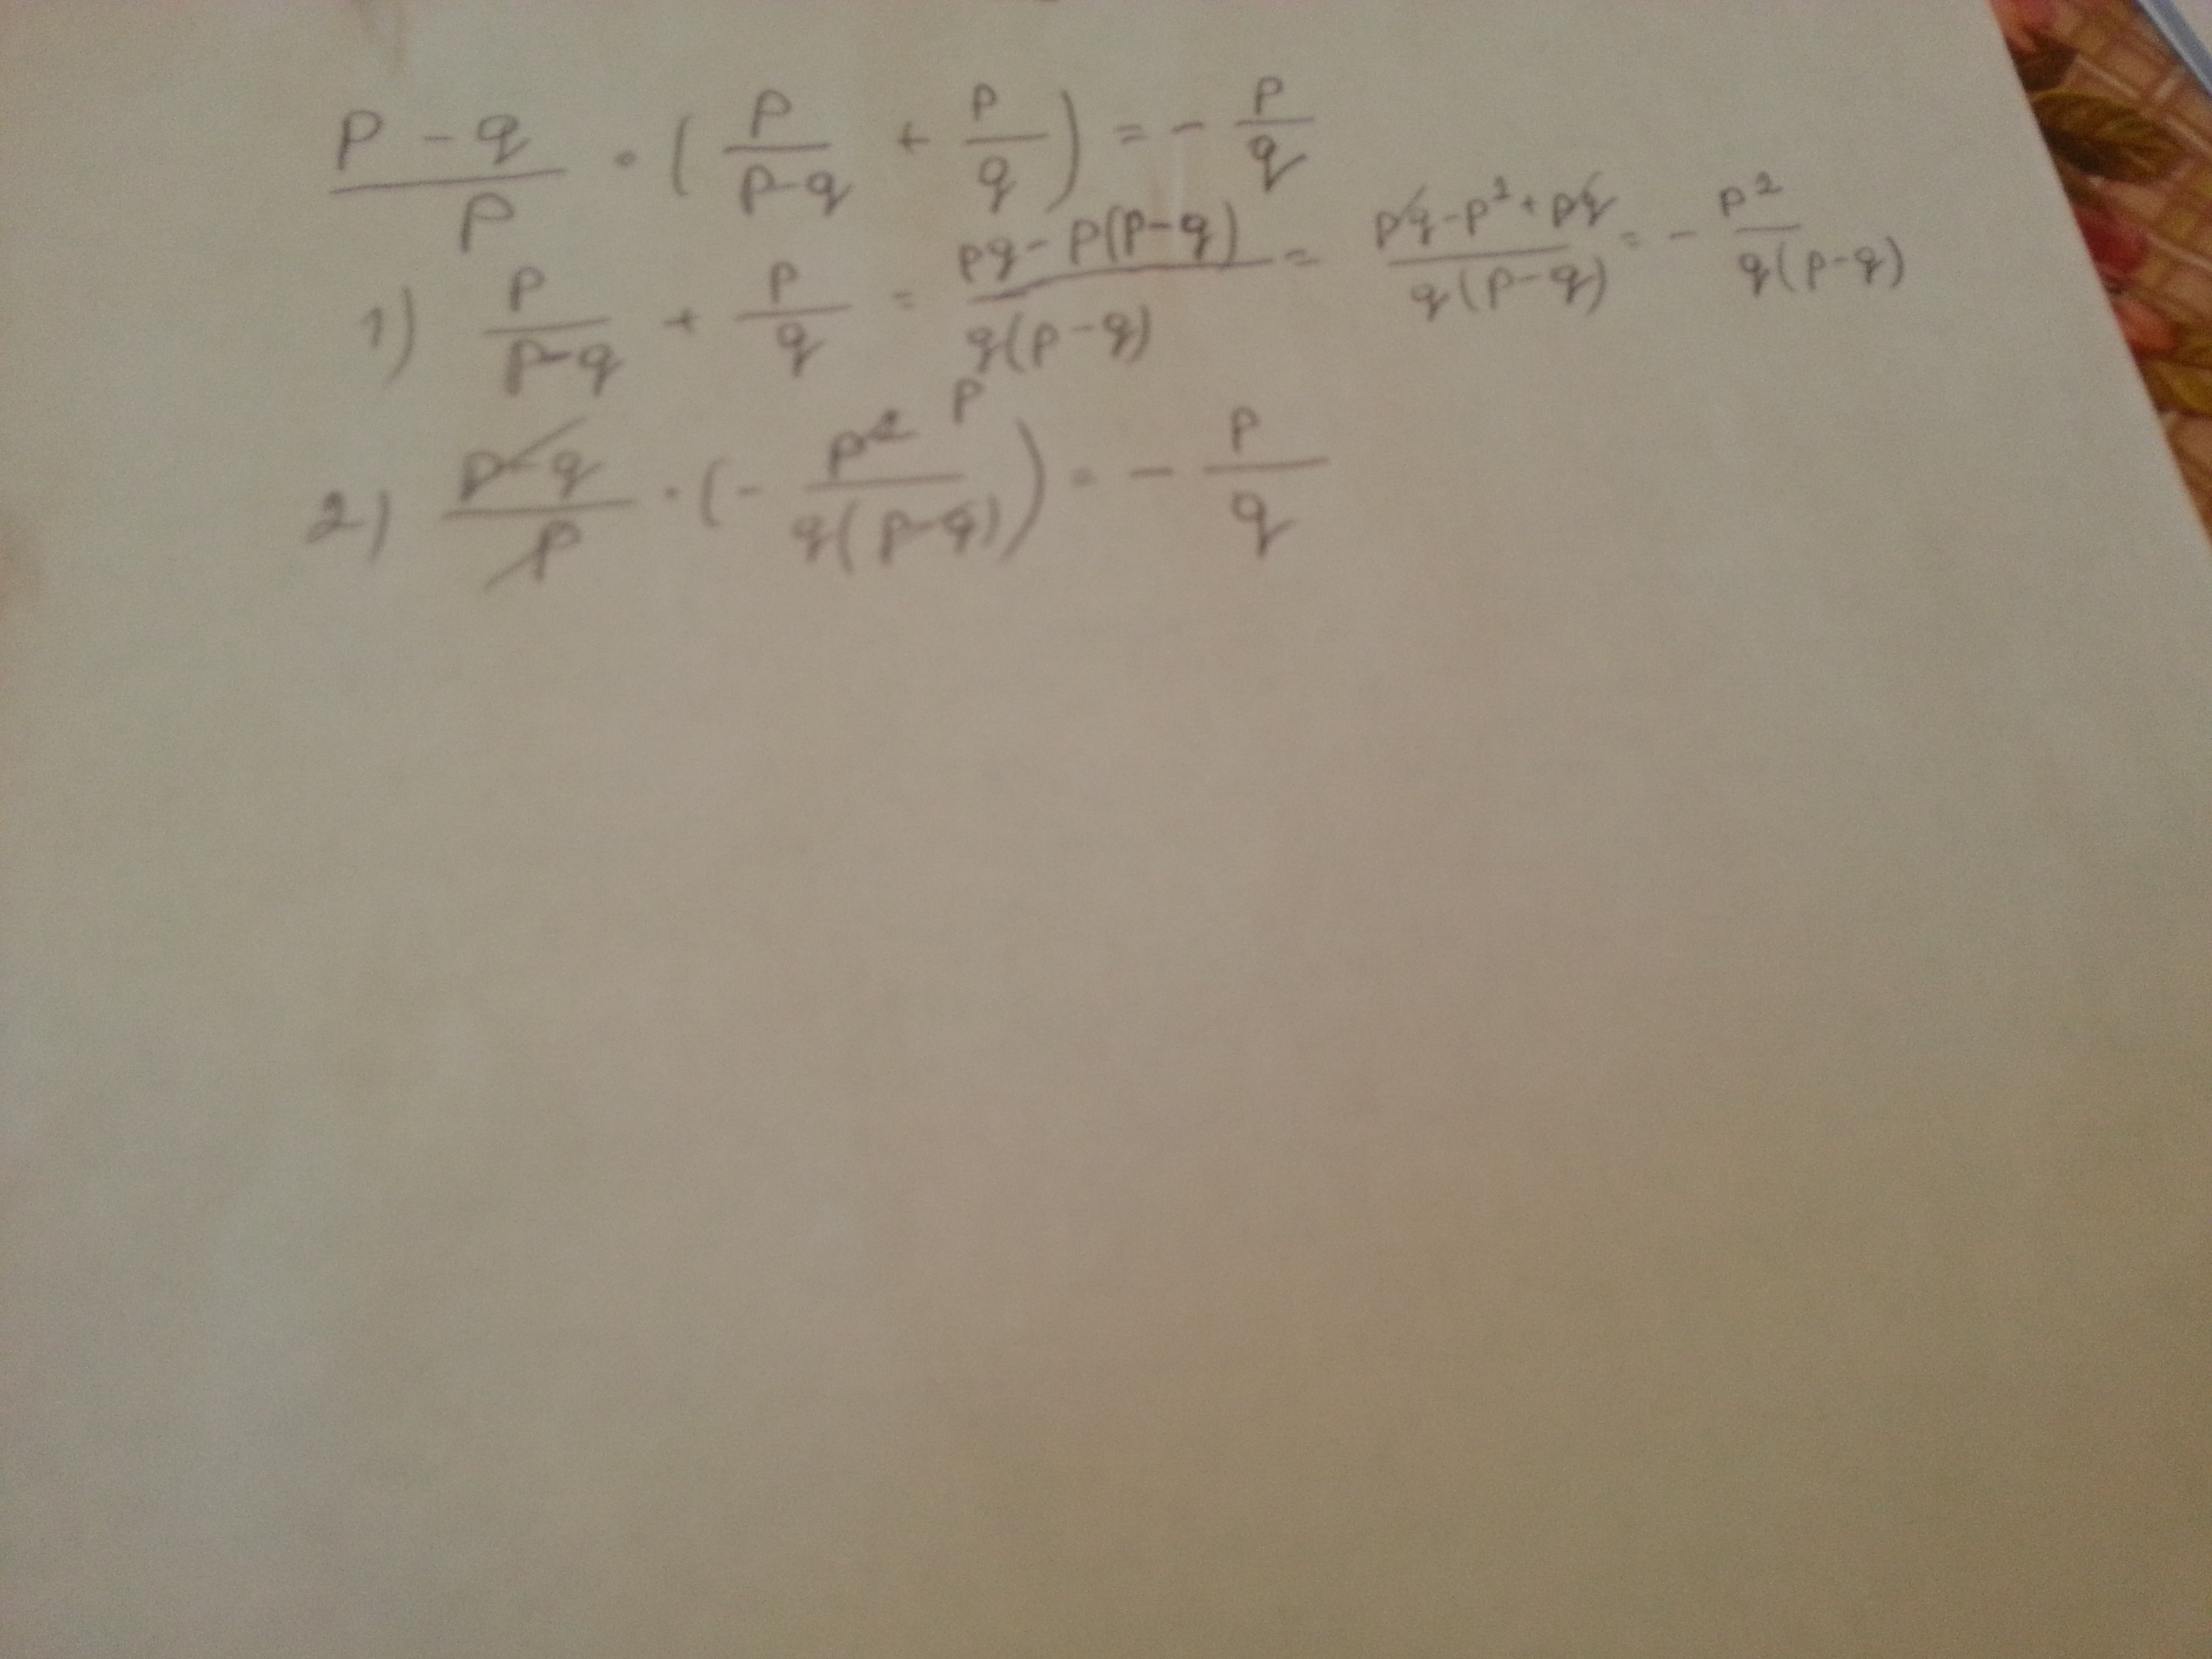 (P - q)/P · (P/(P-q) + P/q) = - P/q
1) P/(P-q) + P/q = (pq - P(P-q))/(q(p-q)) = (pq - p² + pq)/(q(p-q)) = - p²/(q(p-q))
2) (p-q)/p · (- p² P/(q(p-q))) = - P/q